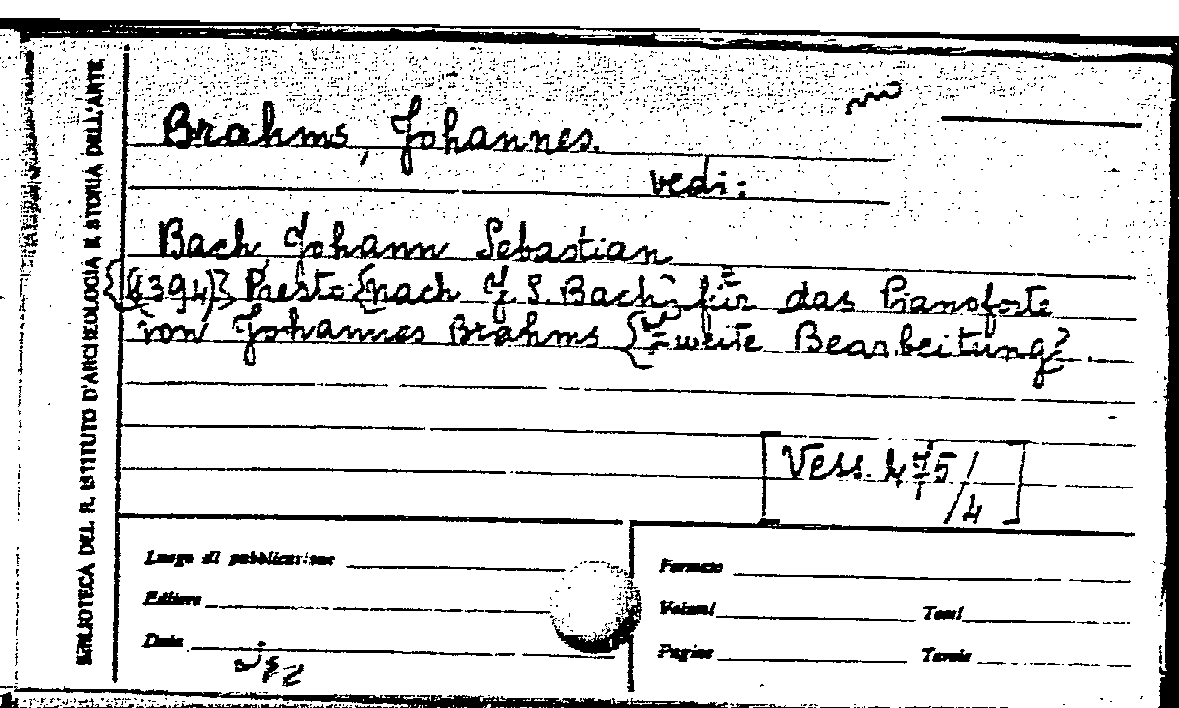 BIBLIOTECA DEL R. ISTITUTO D'ARCHEOLOGIA E STORIA DELL'ARTE
Brahms, Johannes.
vedi:
Bach, Johann Sebastian
{(1394)} Presto {nach J. S. Bach} für das Pianoforte
von Johannes Brahms {zweite Bearbeitung}.
[Vess. 475/4]
Luogo di pubblicazione
Editore
Data
Formato
Volumi Tomi
Pagine Tavole